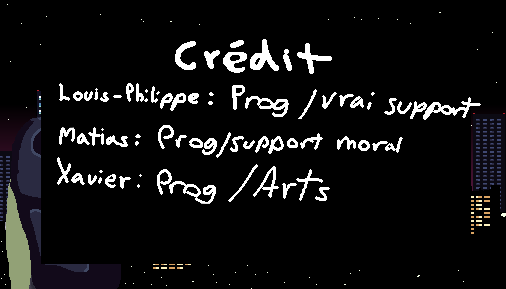 Crédit
Louis-Philippe: Prog /vrai support
Matias: Prog/support moral
Xavier: Prog /Arts